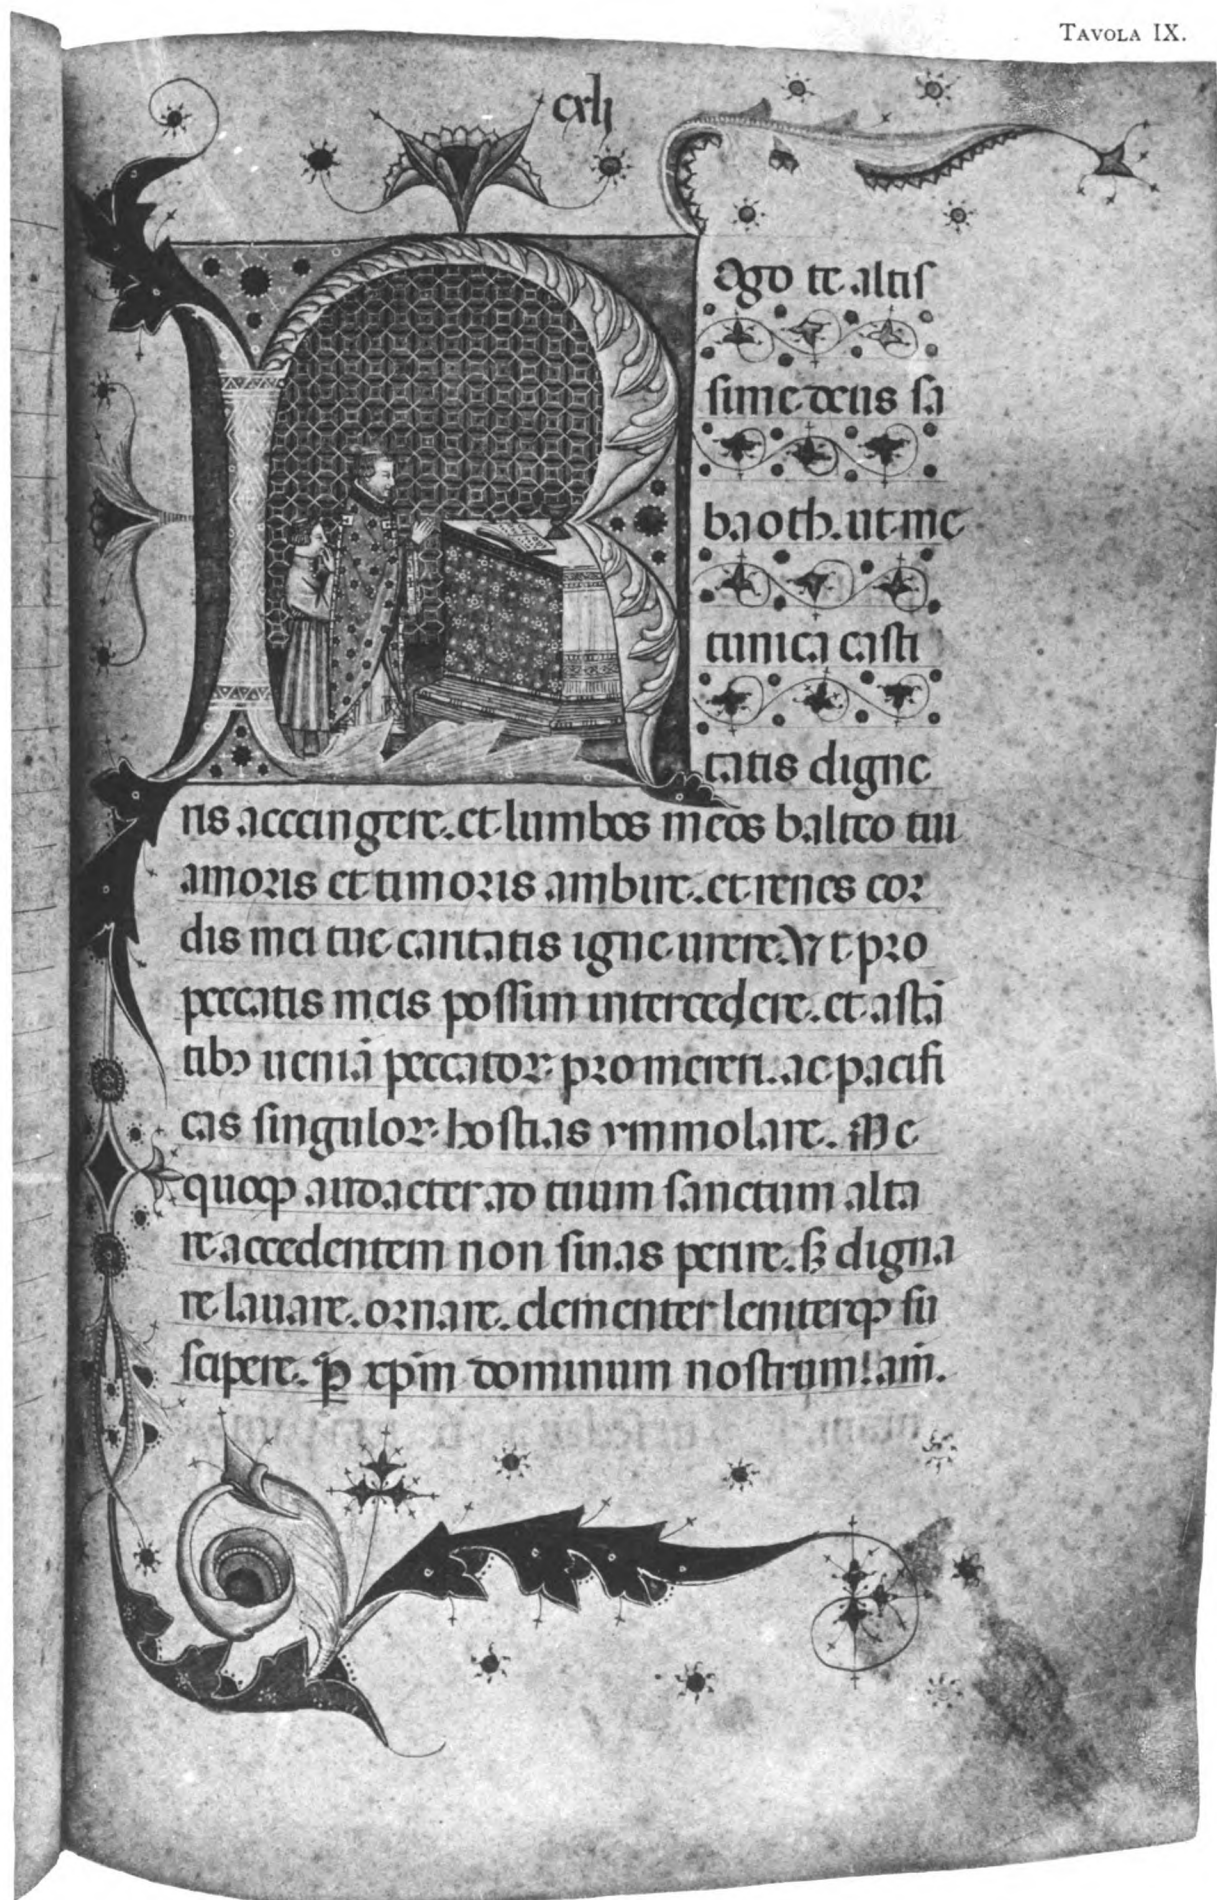 TAVOLA IX.
cxlj
Rogo te altiſ
ſime deus ſa
baoth. ut me
tunica caſti
tatis digne
ris accingere. et lumbos meos balteo tui
amoris et timoris ambire. et renes cor
dis mei tue caritatis igne urere. Vt pro
peccatis meis poſſim intercedere. et aſtā
tibꝰ ueniā peccatoꝝ promereri. ac pacifi
cas ſinguloꝝ hoſtias ymmolare. Me
quoqꝫ audacter ad tuum ſanctum alta
re accedentem non ſinas perire. ſꝫ digna
re lauare. ornare. clementer leniterqꝫ ſu
ſcipere. ꝑ xp̄m dominum noſtrum! am̄.